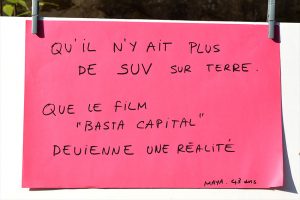 QU'IL N'Y AIT PLUS
DE SUV SUR TERRE.
QUE LE FILM
"BASTA CAPITAL"
DEVIENNE UNE RÉALITÉ
MAYA. 43 ans